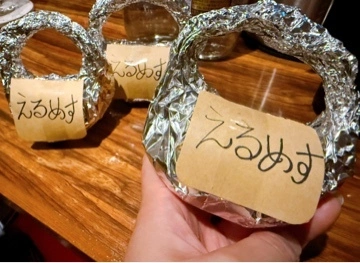 えるめす
えるめす
えるめす